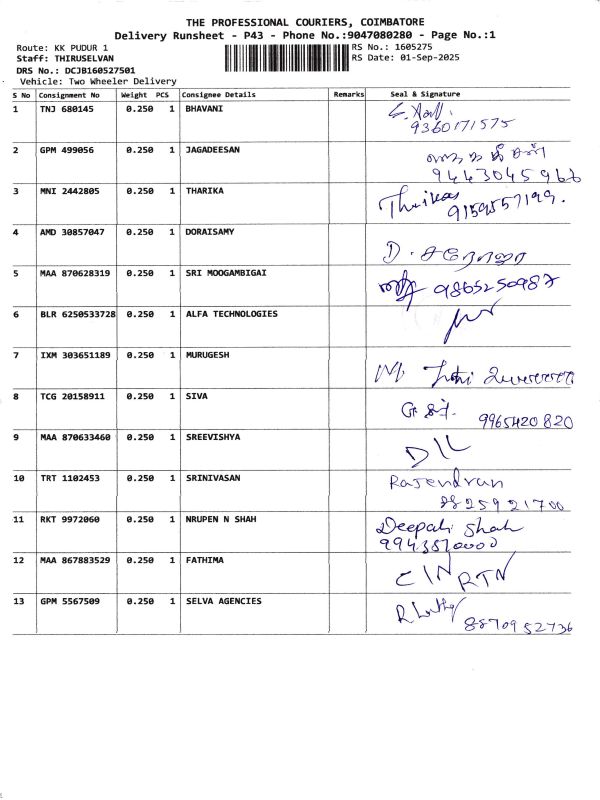 THE PROFESSIONAL COURIERS, COIMBATORE
Delivery Runsheet - P43 - Phone No.:9047080280 - Page No.:1
Route: KK PUDUR 1 RS No.: 1605275
Staff: THIRUSELVAN RS Date: 01-Sep-2025
DRS No.: DCJB160527501
Vehicle: Two Wheeler Delivery
S No Consignment No Weight PCS Consignee Details Remarks Seal & Signature
1 TNJ 680145 0.250 1 BHAVANI
9360171575
2 GPM 499056 0.250 1 JAGADEESAN
9443045966
3 MNI 2442805 0.250 1 THARIKA
9159557199.
4 AMD 30857047 0.250 1 DORAISAMY
D. சரோஜா
5 MAA 870628319 0.250 1 SRI MOOGAMBIGAI 9865250987
6 BLR 6250533728 0.250 1 ALFA TECHNOLOGIES
7 IXM 303651189 0.250 1 MURUGESH
M.
8 TCG 20158911 0.250 1 SIVA
9965420820
9 MAA 870633460 0.250 1 SREEVISHYA
10 TRT 1102453 0.250 1 SRINIVASAN Rajendran
11 RKT 9972060 0.250 1 NRUPEN N SHAH Deepali Shah
12 MAA 867883529 0.250 1 FATHIMA
RTN
13 GPM 5567509 0.250 1 SELVA AGENCIES
8870952736